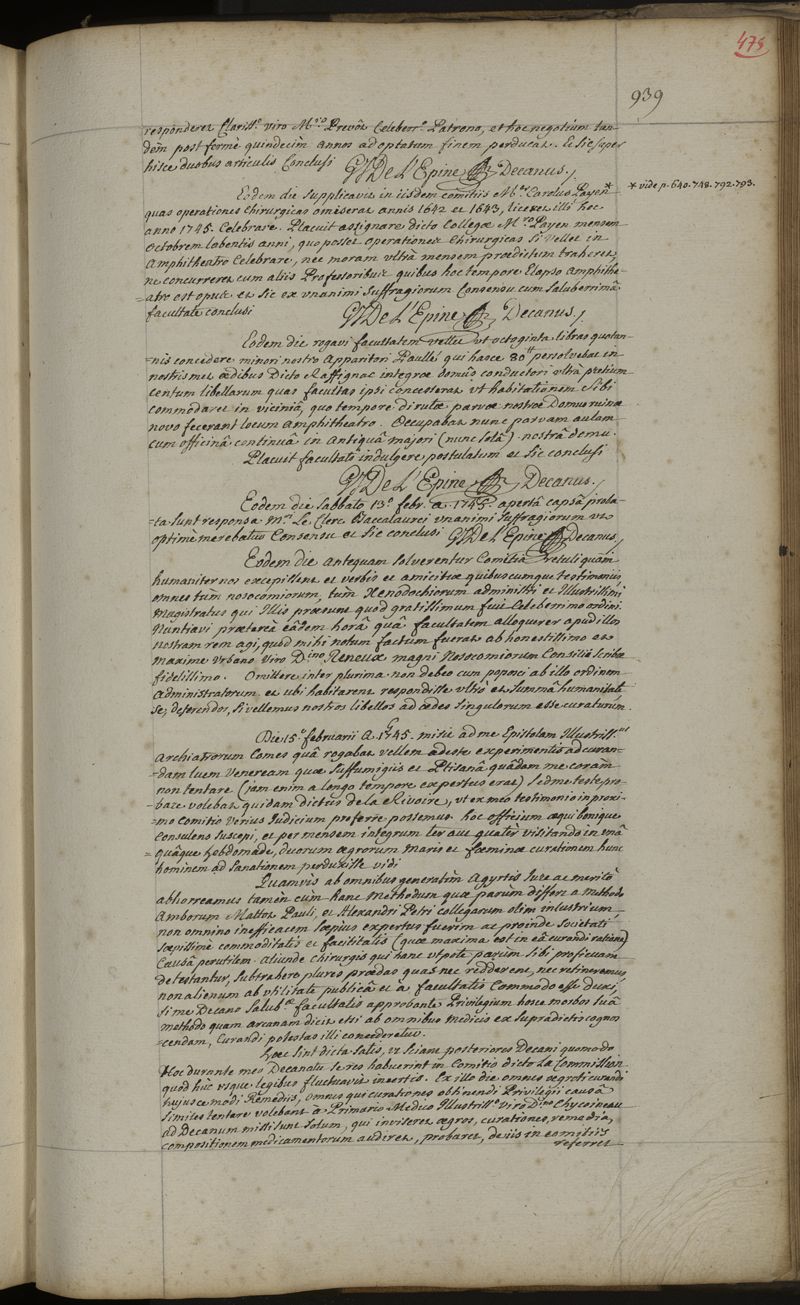 475
939
responderet Clariss.º viro M.ro Prevôt Celeberr.º Patrono, et hoc negotium tan-
dem post fermè quindecim annos ad optatum finem perducat. Et sic super
hisce duobus articulis Conclusi G. De L'Epine Decanus./
Eodem die Supplicavit in iisdem comitiis M.er Carolus Payen*
* vide p. 640. 748. 792. 793.
quas operationes Chirurgicas omiserat annis 1642 et 1643, liceret illi hoc
anno 1745. Celebrare. Placuit assignare dicto Collegæ M.ro Payen mensem
Octobrem labentis anni, quo posset operationes Chirurgicas si vellet in
Amphitheatro Celebrare, nec moram ultrà mensem prædictum traheret,
ne concurreret cum aliis Professoribus quibus hoc tempore Elapso Amphithe-
=atro est opus et sic ex unanimi Suffragiorum Consensu cum Saluberrimâ
facultate conclusi G. De L'Epine Decanus./
Eodem die rogavi facultatem vellet ut octoginta libras quotan-
=nis concedere minori nostro Apparitori Paullé qui hasce 80tt persolvebat in
nostrismet ædibus Dicto Raffignac integræ domûs conductori ultrà pretium
centum libellarum quas facultas ipsi concesserat ut habitationem Sibi
commodaret in viciniâ, quo tempore dirutæ parvæ nostræ Domus ruinæ
novo fecerant locum Amphitheatro. Occupabat nunc parvam aulam
cum officinâ continuâ in Antiquâ majori (nunc solâ) nostrâ domu.
Placuit facultati indulgere postulatum et Sic conclusi
G. De L'Epine Decanus./
Eodem die Sabbato 13.º febr. a. 1745. apertâ capsâ prola-
=ta sunt responsa M.ri Le Clerc Baccalaurei unanimi Suffragiorum ut
optimè merebatur Consensu et Sic conclusi G. De L'Epine Decanus./
Eodem die antequam solverentur Comitia retuli quàm
humaniter nos excepissent et verbis et amicitiæ quibuscumque testimoniis
omnes tùm nosocomiorum, tùm Xenodochiorum administri et Illustrissimi
Magistratus qui Illis præsunt quod gratissimum fuit Celeberrimo ordini.
Nuntiavi prætereà eâdem horâ quâ facultatem alloquerer apud illos
nostram rem agi, quod mihi notum factum fuerat ab honestissimo et
maxime Urbano viro D.ino Reneux magni Nosocomiorum Consilii Scribâ
fidelissimo. Omittere inter plurima non debeo cum poposci ab illo ordinem
administratorum et ubi habitarent respondisse ultrò et Summâ humanitate
se, deferendos, si vellemus nostros libellos ad ædes singulorum esse curaturum.
Die 15.º februarii A. 1745. misit ad me Epistolam Illustriss.us
Archiatrorum Comes quâ rogabat vellem adesse experimentis ad curan-
=dam luem Veneream quæ Suffumigiis et Ptisanâ quâdam me coram
non tentare (jam enim a longo tempore expertus erat) sed me teste, pro-
=bare volebat quidam dictus de la Rivoire, ut ex meo testimonio in proxi-
=mo Comitio verius Iudicium proferre possemus. hoc officium æqui bonique
Consulens Suscepi, et per mensem integrum ter aut quater visitando in unâ
quâque hebdomade, duorum ægrorum Maris et fœminæ curationem hunc
hominem ad Sanationem perduxisse vidi
Quamvis ab omnibus generatim Agyrtis Iure ac meritò
abhorreamus tamen cùm hanc Methodum quæ parùm differt a methodo
Amborum Mattot Pauli, et Alexandri Petri collegarum olim industrium
non omnino inefficacem sæpius expertus fuerim ac proinde Societati
sæpissimè commoditatis et facilitatis (quæ maxima est in eâ curandi ratione)
Causâ perutilem. aliunde Chirurgis qui hanc utpote parùm Sibi proficuam
detestantur, Subtrahere plures prædas quas nec redderent, nec retinerent
non alienum ab utilitate publicâ et à facultatis Commodo esse duxi,
si me Decano Salub.æ facultatis approbante Privilegium hosce morbos suâ
methodo quam arcanam dicit etsi ab omnibus medicis ex supradictis cognos-
=cendam, Curandi potestas illi concederetur.
Hæc sint dicta satis, ut Sciant posteriores Decani quomodo
hoc durante meo Decanatu se res habuerint in Comitio dicto La Commission
quod hùc usque legibus fluctuavit incertis. Ex illo die omnes ægroti curandi
hujusce modi Remediis, omnes qui curationes obtinendi Privilegii causâ
similes tentare volebant à Primario Medico Illustriss.º viro D.ino Chycoineau
ad Decanum missi sunt Solum, qui inviseret ægros, curationes, remedia,
compositionem medicamentorum audiret, probaret, de iis in comitiis
referret